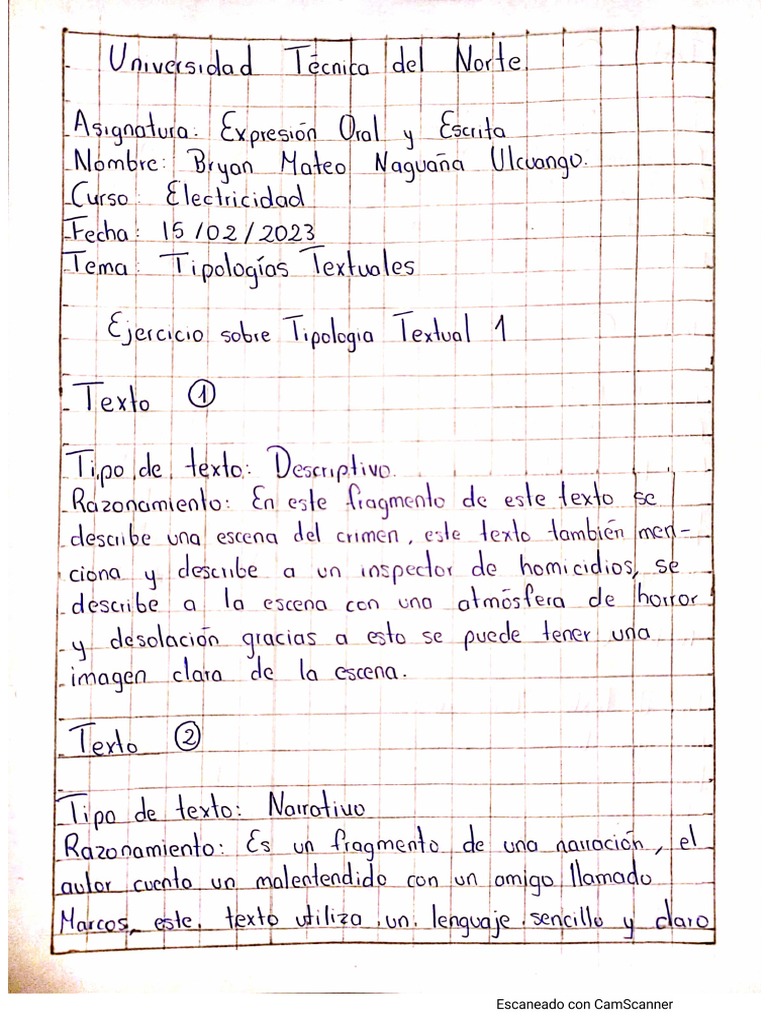 Universidad Técnica del Norte
Asignatura: Expresión Oral y Escrita
Nombre: Bryan Mateo Naguaña Ulcuango.
Curso: Electricidad
Fecha: 15/02/2023
Tema: Tipologías Textuales
Ejercicio sobre Tipologia Textual 1
Texto ①
Tipo de texto: Descriptivo.
Razonamiento: En este fragmento de este texto se
describe una escena del crimen, este texto también men-
ciona y describe a un inspector de homicidios, se
describe a la escena con una atmósfera de horror
y desolación gracias a esto se puede tener una
imagen clara de la escena.
Texto ②
Tipo de texto: Narrativo
Razonamiento: Es un fragmento de una narración, el
autor cuenta un malentendido con un amigo llamado
Marcos, este texto utiliza un lenguaje sencillo y claro
Escaneado con CamScanner